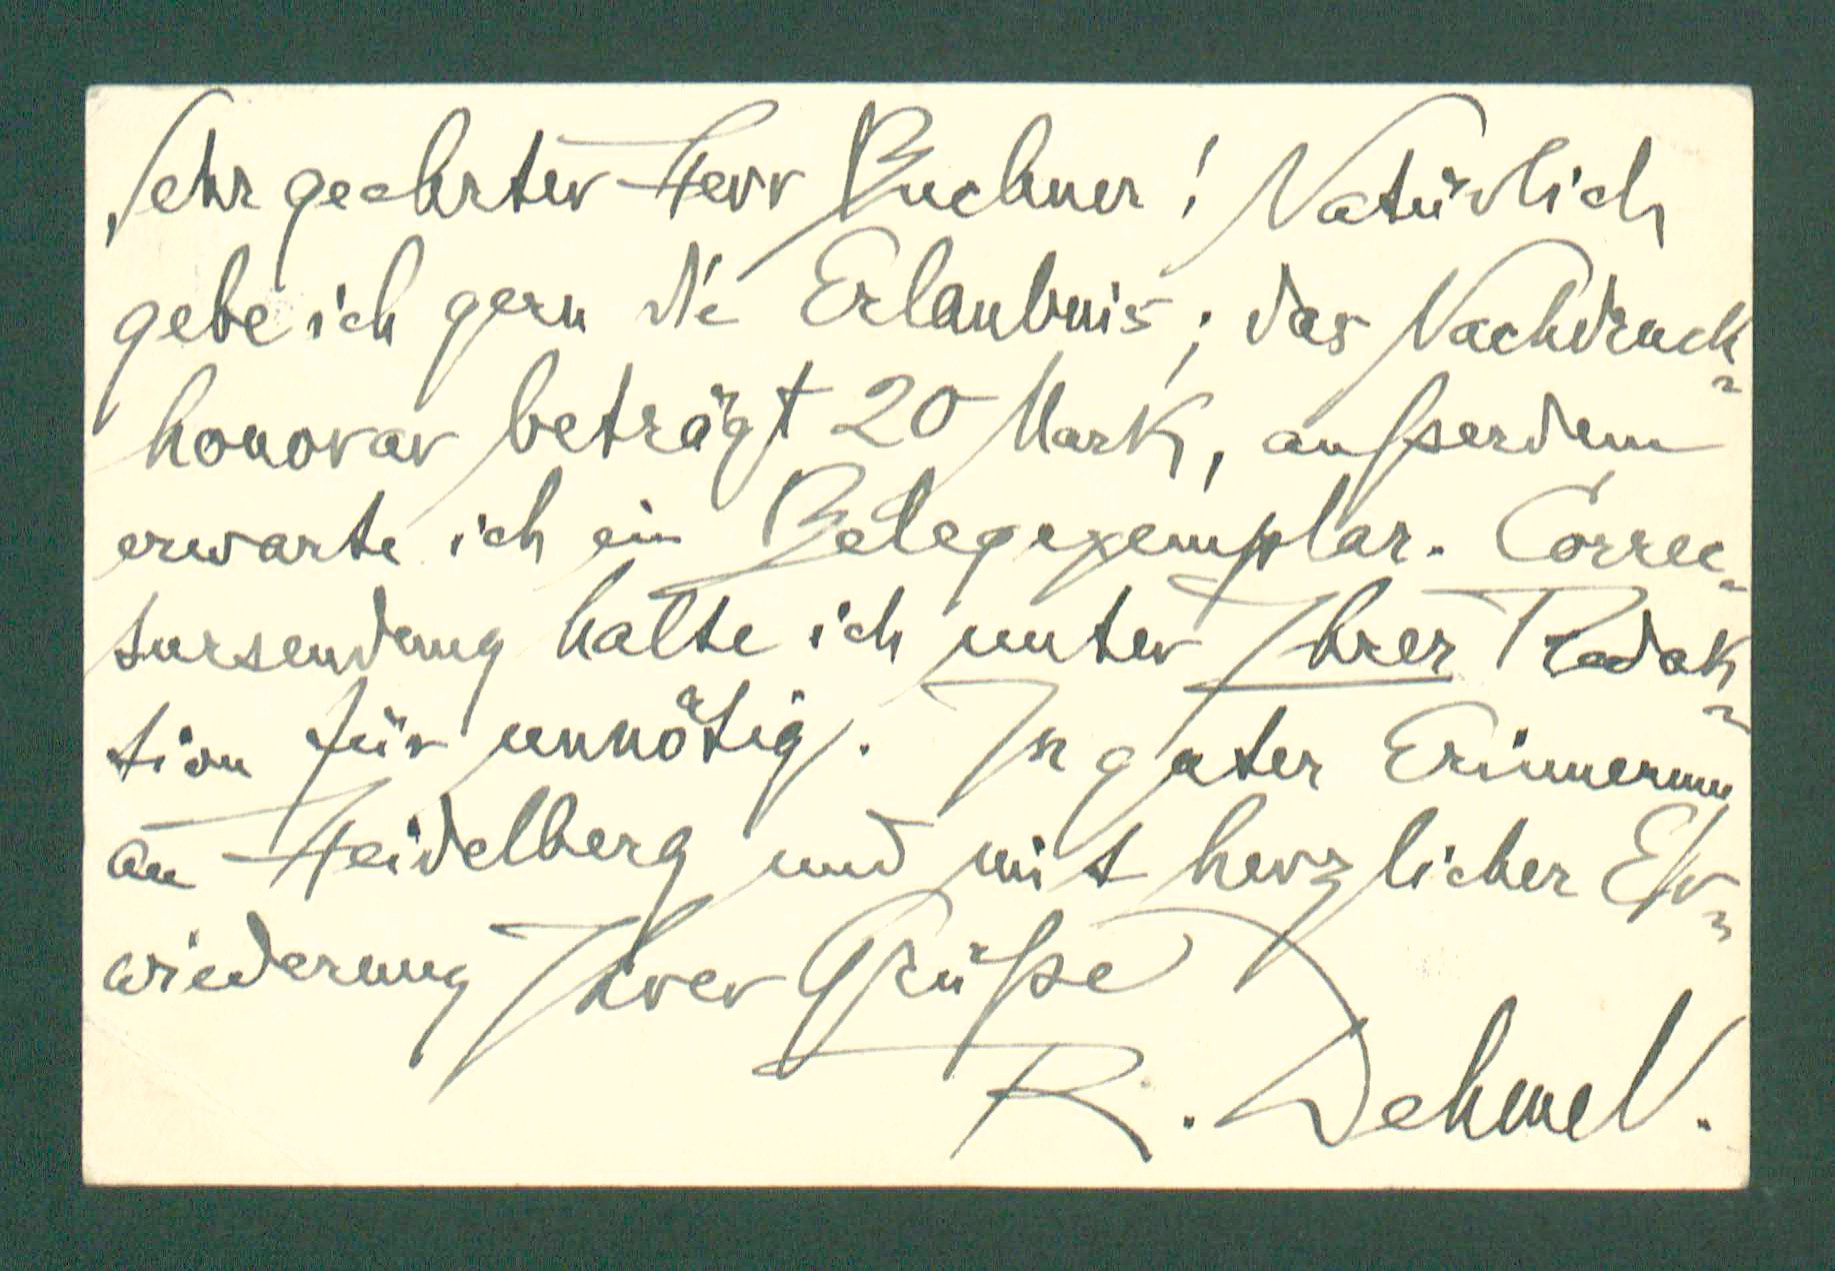 Sehr geehrter Herr Buchner! Natürlich
gebe ich gern die Erlaubnis; das Nachdruck-
honorar beträgt 20 Mark, außerdem
erwarte ich ein Belegexemplar. Correc-
tursendung halte ich unter Ihrer Redak-
tion für unnötig. In guter Erinnerung
an Heidelberg und mit herzlicher Er-
wiederung Ihrer Grüße
R. Dehmel.